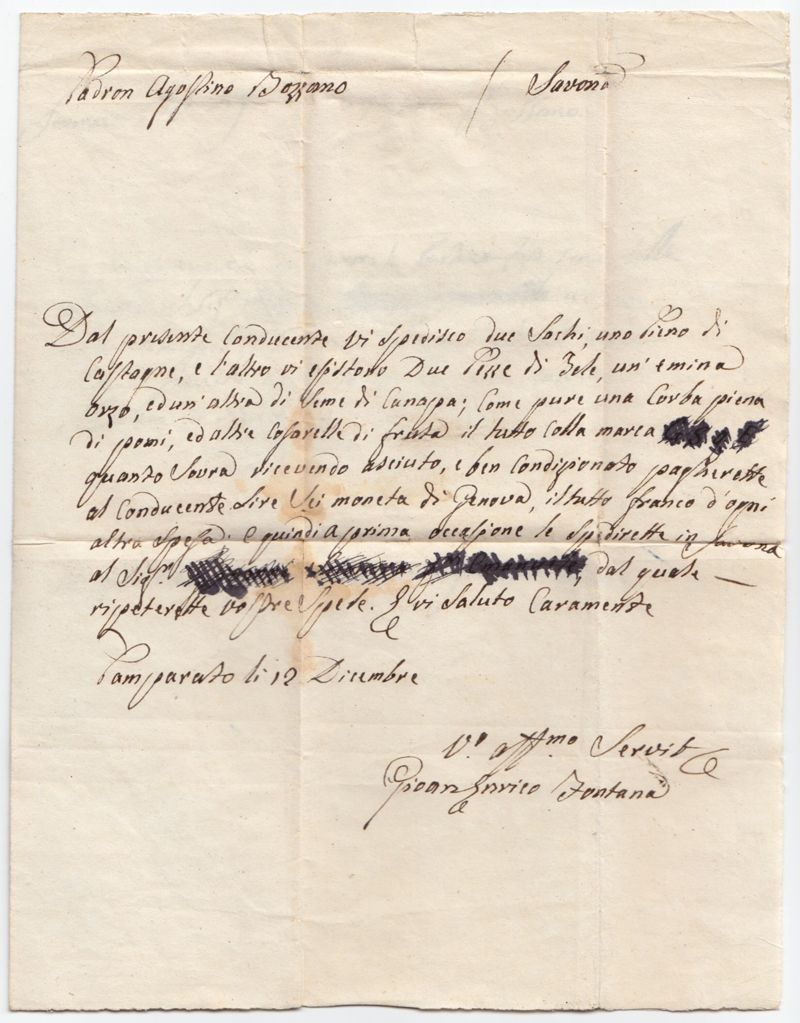 Padron Agostino Bozzano / Savona
Dal presente Conducente vi spedisco due Sachi, uno Pieno di
Castagne, e l'altro vi esistono Due Pezze di Tele, un' emina
orzo, ed un' altra di Seme di Canapa; Come pure una Corba piena
di pomi, ed altre Cosarelle di fruta il tutto Colla marca
quanto Sovra ricevendo asciuto, e ben Condizionato pagherette
al Conducente Lire Sei moneta di Genova, il tutto franco d'ogni
altra spesa; e quindi a prima occasione le spedirette in Savona
al Sigr. dal quale
ripeterette vostre Spese. E vi Saluto Caramente
Pamparato li 12 Dicembre
V.o aff.mo Servit
Gioan Enrico Fontana